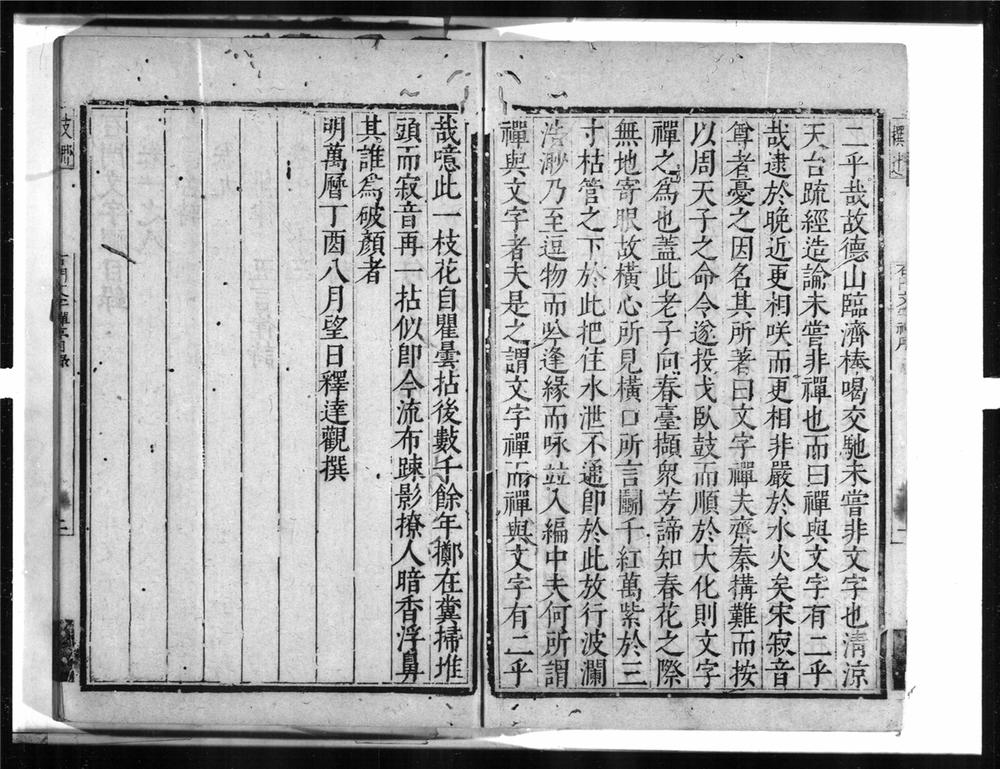 二乎哉故德山臨濟棒喝交馳未嘗非文字也清涼
天台疏經造論未嘗非禪也而曰禪與文字有二乎
哉逮於晚近更相咲而更相非嚴於水火矣宋寂音
尊者憂之因名其所著曰文字禪夫齊秦搆難而按
以周天子之命令遂投戈臥鼓而順於大化則文字
禪之為也蓋此老子向春臺擷衆芳諦知春花之際
無地寄眼故橫心所見橫口所言鬬千紅萬紫於三
寸枯管之下於此把住水泄不通即於此放行波瀾
浩渺乃至逗物而吟逢緣而咏並入編中夫何所謂
禪與文字者夫是之謂文字禪而禪與文字有二乎
哉噫此一枝花自瞿曇拈後數千餘年擲在糞掃堆
頭而寂音再一拈似即今流布踈影撩人暗香浮鼻
其誰為破顏者
明萬曆丁酉八月望日釋達觀撰